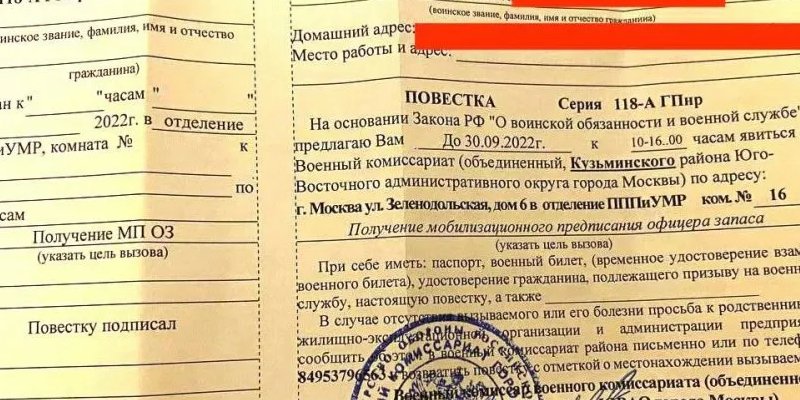 (воинское звание, фамилия, имя и отчество гражданина)
Домашний адрес:
Место работы и адрес:
ПОВЕСТКА Серия 118-А ГПнр
На основании Закона РФ "О воинской обязанности и военной службе"
предлагаю Вам До 30.09.2022г. к 10-16..00 часам явиться
Военный комиссариат (объединенный, Кузьминского района Юго-
Восточного административного округа города Москвы) по адресу:
г. Москва ул. Зеленодольская, дом 6 в отделение ПППиУМР ком. № 16
Получение мобилизационного предписания офицера запаса
(указать цель вызова)
При себе иметь: паспорт, военный билет, (временное удостоверение
военного билета), удостоверение гражданина, подлежащего призыву на
службу, настоящую повестку, а также
В случае отсутствия вызываемого или его болезни просьба к
жилищно-эксплуатационной организации и администрации
сообщить об этом в военный комиссариат района письменно или по
84953796563 и возвратить повестку с отметкой о местонахождении
Военный комиссар военного комиссариата
города Москвы)
звание, фамилия, имя и отчество
гражданина)
к " "часам "
2022г. в отделение
комната № к
по
Получение МП ОЗ
(указать цель вызова)
Повестку подписал